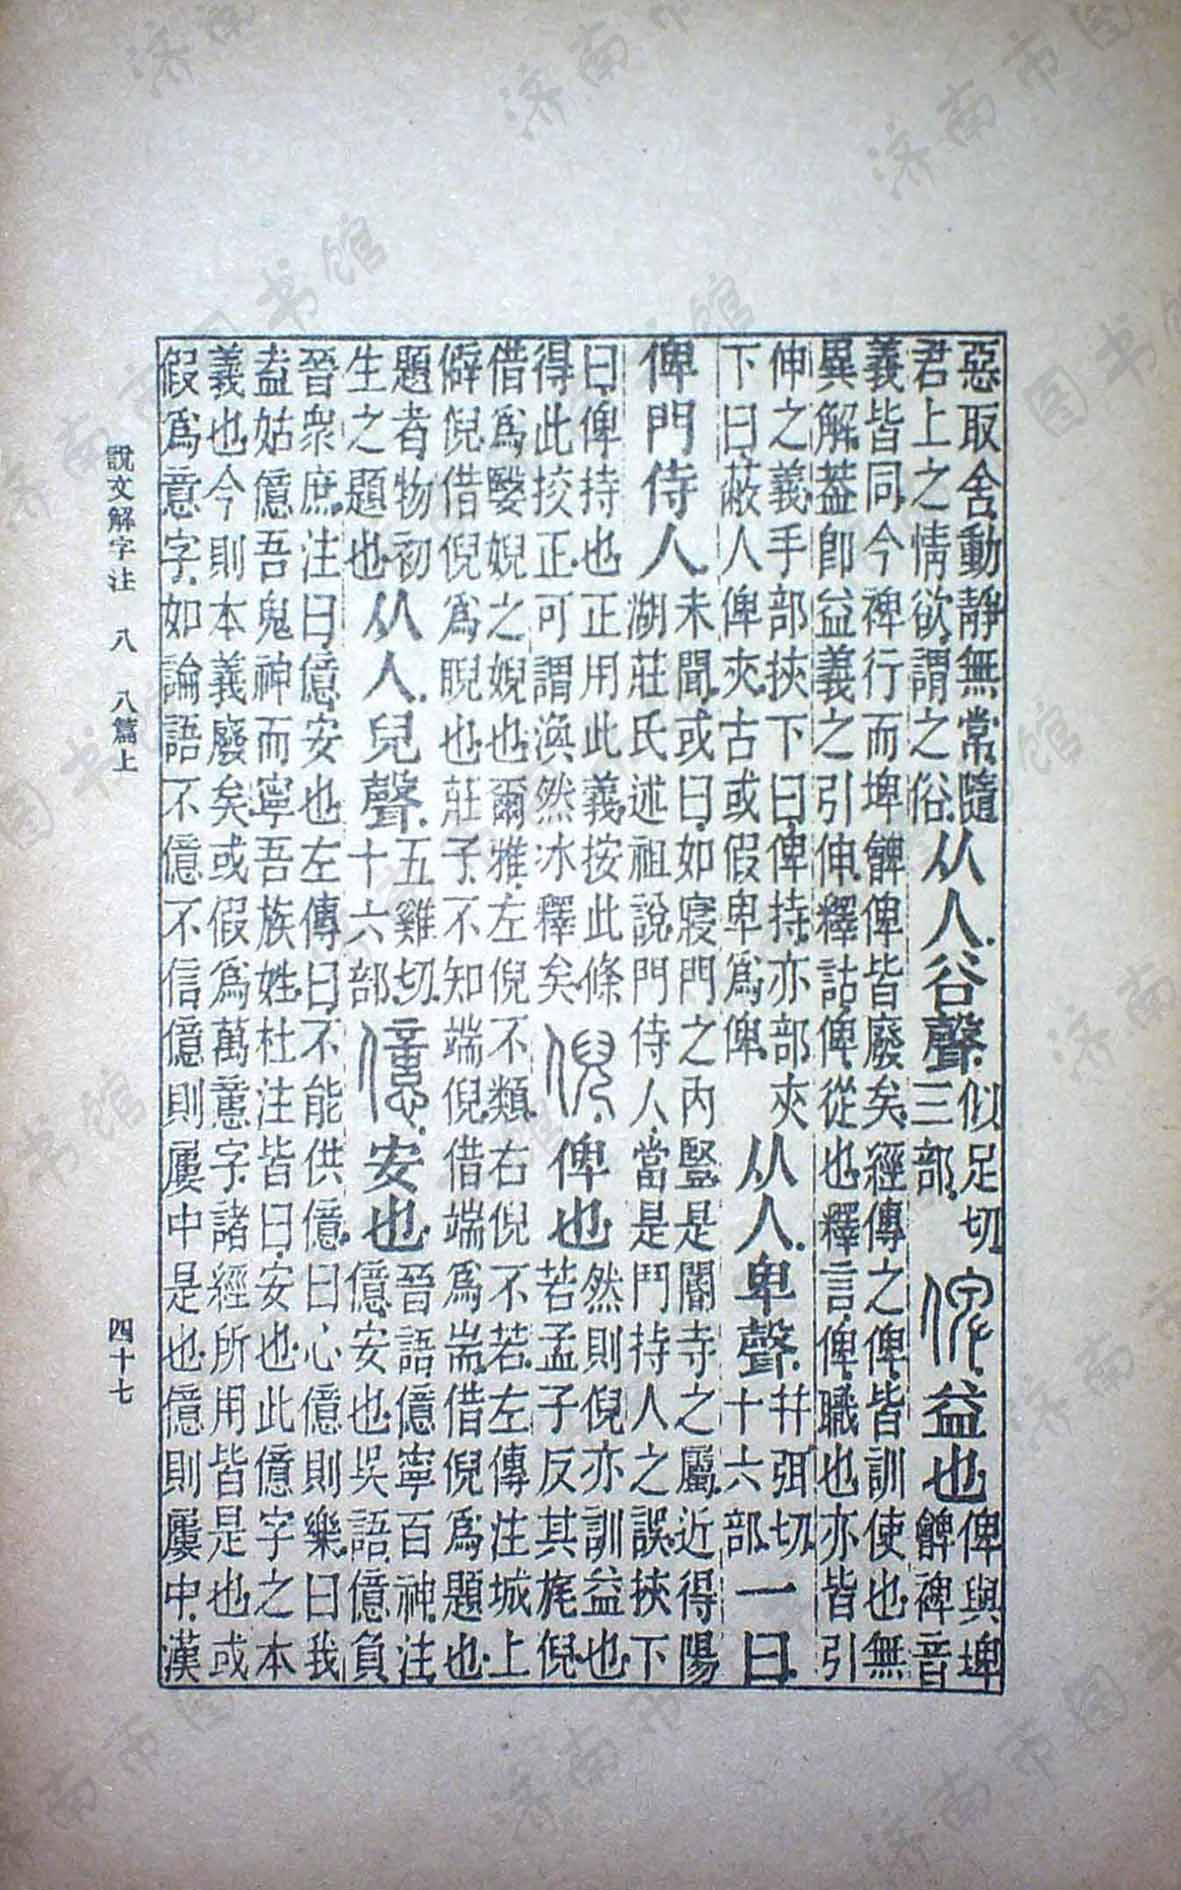 惡取舍動靜無常隨
君上之情欲謂之俗
从人谷聲
似足切
三部
俾益也
俾與埤
朇裨音
義皆同今裨行而埤朇俾皆廢矣經傳之俾皆訓使也無
異解葢卽益義之引伸釋詁俾從也釋言俾職也亦皆引
伸之義手部挾下曰俾持亦部夾
下曰蔽人俾夾古或假卑爲俾
从人卑聲
幷弭切
十六部
一曰
俾門侍人
未聞或曰如寢門之內豎是閽寺之屬近得陽
湖莊氏述祖說門侍人當是鬥持人之誤挾下
曰俾持也正用此義按此條
得此挍正可謂渙然冰釋矣
倪俾也
然則倪亦訓益也
若孟子反其旄倪
借爲嫛婗之婗也爾雅左倪不類右倪不若左傳注城上
僻倪借倪爲睨也莊子不知端倪借端爲耑借倪爲題也
題者物初
生之題也
从人兒聲
五雞切
十六部
億安也
晉語億寧百神注
億安也吳語億負
晉衆庶注曰億安也左傳曰不能供億曰心億則樂曰我
盍姑億吾鬼神而寧吾族姓杜注皆曰安也此億字之本
義也今則本義廢矣或假爲萬意字諸經所用皆是也或
假爲意字如論語不億不信億則屢中是也億則屢中漢
說文解字注 八 八篇上 四十七
济南市图书馆